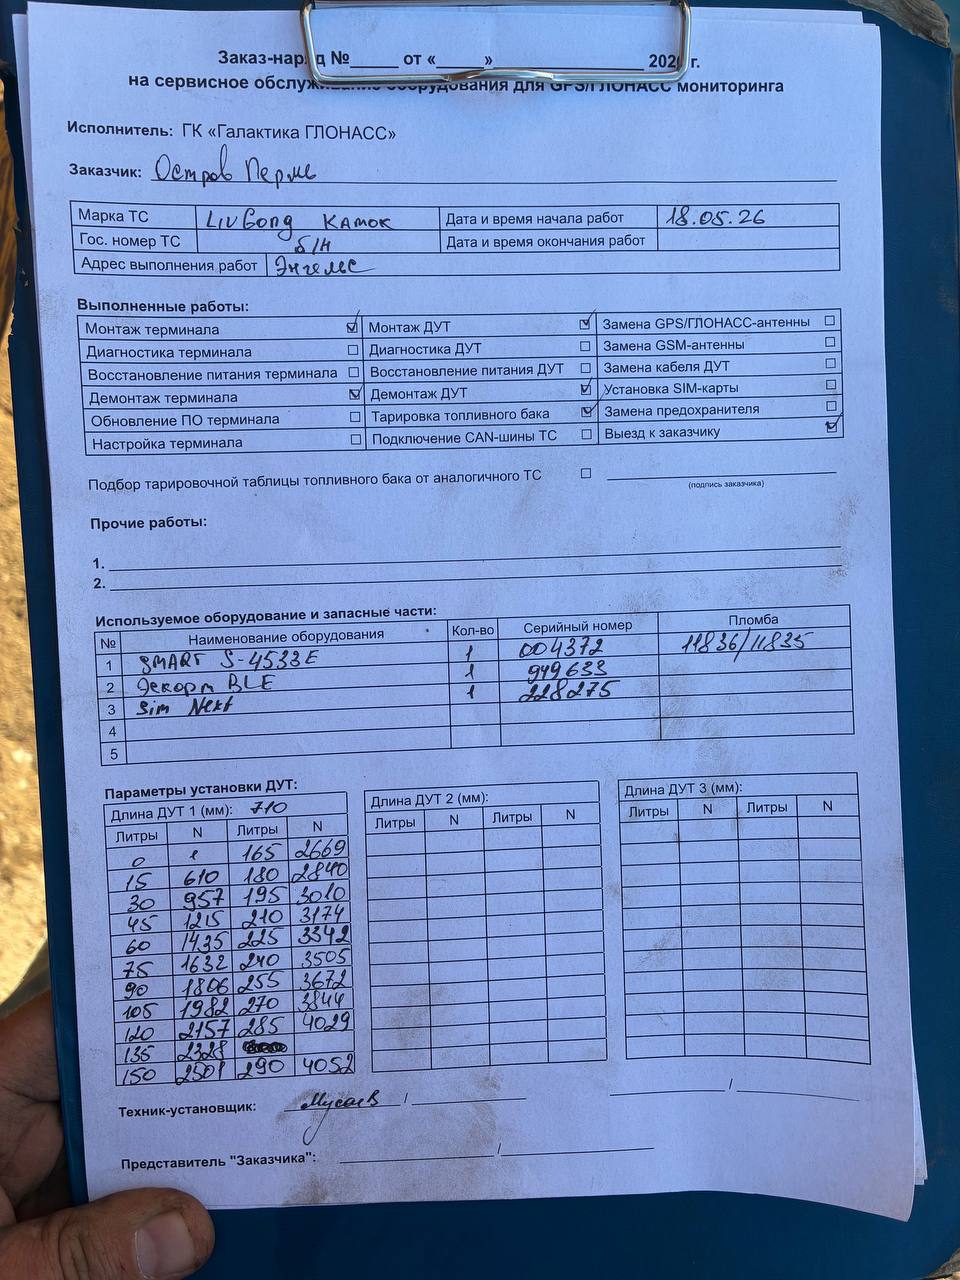 Заказ-наряд №_____ от «_____»________________ 202 г.
на сервисное обслуживание оборудования для GPS/ГЛОНАСС мониторинга
Исполнитель: ГК «Галактика ГЛОНАСС»
Заказчик: Остров Пермь
Марка ТС LiuGong Каток Дата и время начала работ 18.05.26
Гос. номер ТС б/н Дата и время окончания работ
Адрес выполнения работ Энгельс
Выполненные работы:
Монтаж терминала ☑ Монтаж ДУТ ☑ Замена GPS/ГЛОНАСС-антенны ☐
Диагностика терминала ☐ Диагностика ДУТ ☐ Замена GSM-антенны ☐
Восстановление питания терминала ☐ Восстановление питания ДУТ ☐ Замена кабеля ДУТ ☐
Демонтаж терминала ☑ Демонтаж ДУТ ☑ Установка SIM-карты ☐
Обновление ПО терминала ☐ Тарировка топливного бака ☑ Замена предохранителя ☐
Настройка терминала ☐ Подключение CAN-шины ТС ☐ Выезд к заказчику ☑
Подбор тарировочной таблицы топливного бака от аналогичного ТС ☐
(подпись заказчика)
Прочие работы:
1.
2.
Используемое оборудование и запасные части:
№ Наименование оборудования Кол-во Серийный номер Пломба
1 SMART S-4533E 1 004372 11836/11835
2 Эскорт BLE 1 949633
3 Sim Next 1 228275
4
5
Параметры установки ДУТ:
Длина ДУТ 1 (мм): 710 Длина ДУТ 2 (мм): Длина ДУТ 3 (мм):
Литры N Литры N Литры N Литры N Литры N Литры N
0 165 2669
15 610 180 2840
30 957 195 3010
45 1215 210 3174
60 1435 225 3342
75 1632 240 3505
90 1806 255 3672
105 1982 270 3844
120 2157 285 4029
135 2328
150 2501 290 4052
Техник-установщик: Мусаев / /
Представитель "Заказчика": /